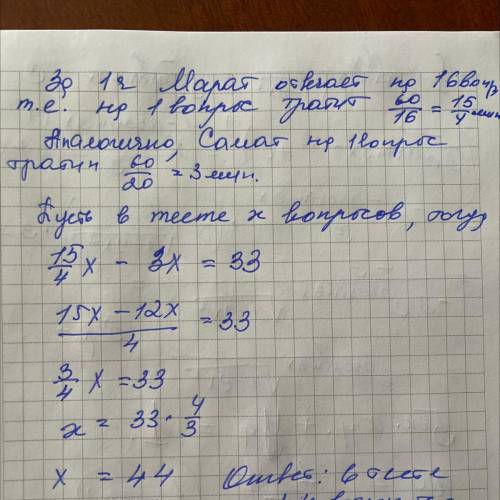 За 1ч Марат отвечает на 16 воп/з
т.е. на 1 вопрос тратит 60/16 = 15/4 мин
Аналогично, Самат на 1 вопрос
тратит 60/20 = 3 мин.
Пусть в тесте x вопросов, тогда
15/4 x - 3x = 33
(15x - 12x)/4 = 33
3/4 x = 33
x = 33 · 4/3
x = 44 Ответ: в тесте